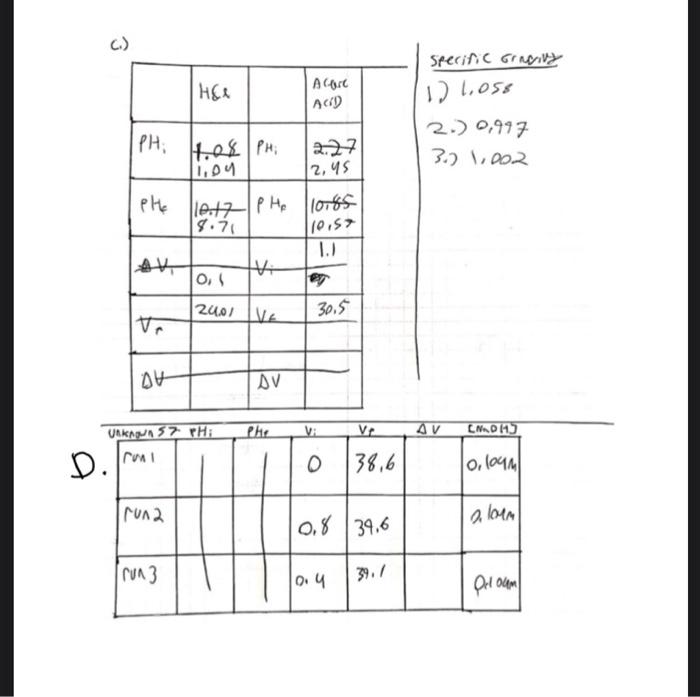 C.)
Specific Gravity
HCl Acetic Acid
1.) 1.058
2.) 0.997
3.) 1.002
PHi 1.08 PHi 2.27
1.04 2.45
PHf 10.17 PHf 10.85
8.71 10.57
ΔVi 0.1 Vi 1.1
Vf Vf 30.5
ΔV ΔV
Unknown 57 PHi PHf Vi Vf ΔV [NaOH]
D.
run 1 0 38.6 0.104M
run 2 0.8 39.6 0.104M
run 3 0.4 39.1 0.104M